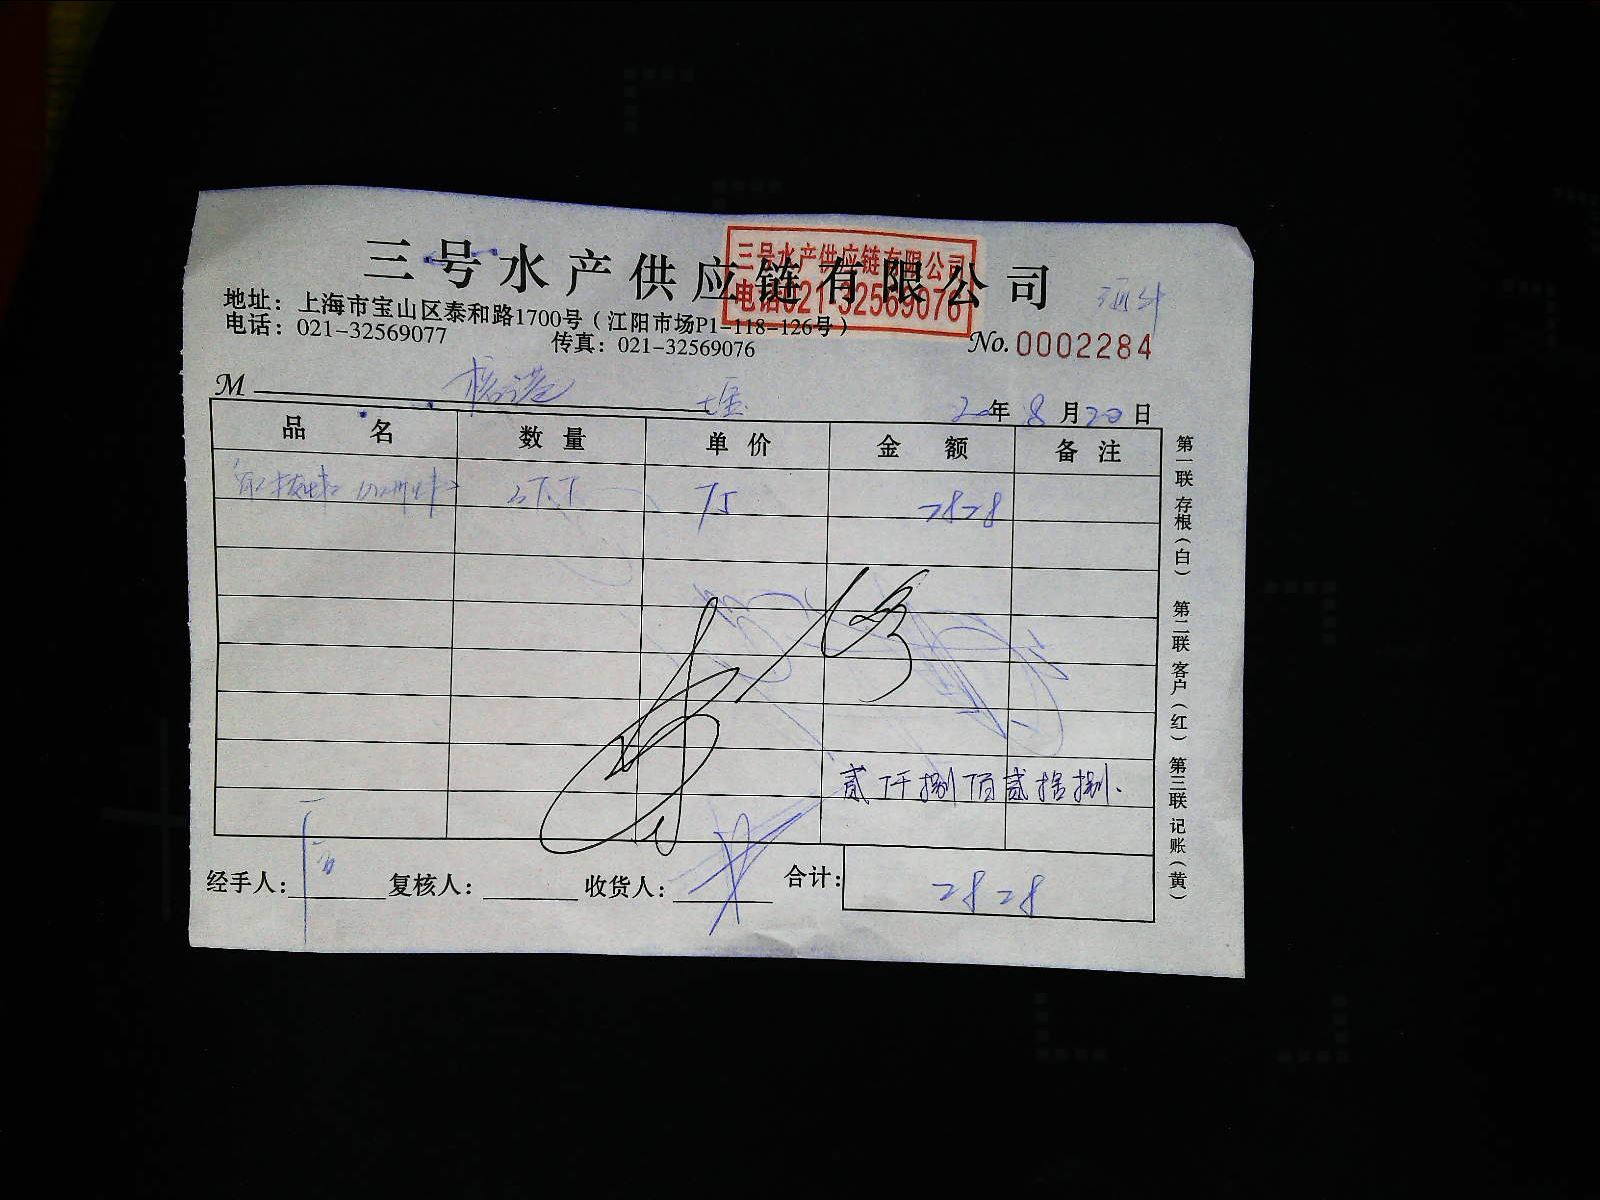 三号水产供应链有限公司
三号水产供应链有限公司
电话021-32569076
地址：上海市宝山区泰和路1700号（江阳市场P1-118-126号）
电话：021-32569077
传真：021-32569076
No.0002284
M
20年8月20日
品名 数量 单价 金额 备注
75 2828
贰仟捌佰贰拾捌.
经手人： 复核人： 收货人： 合计：2828
第一联 存根（白） 第二联 客户（红） 第三联 记账（黄）